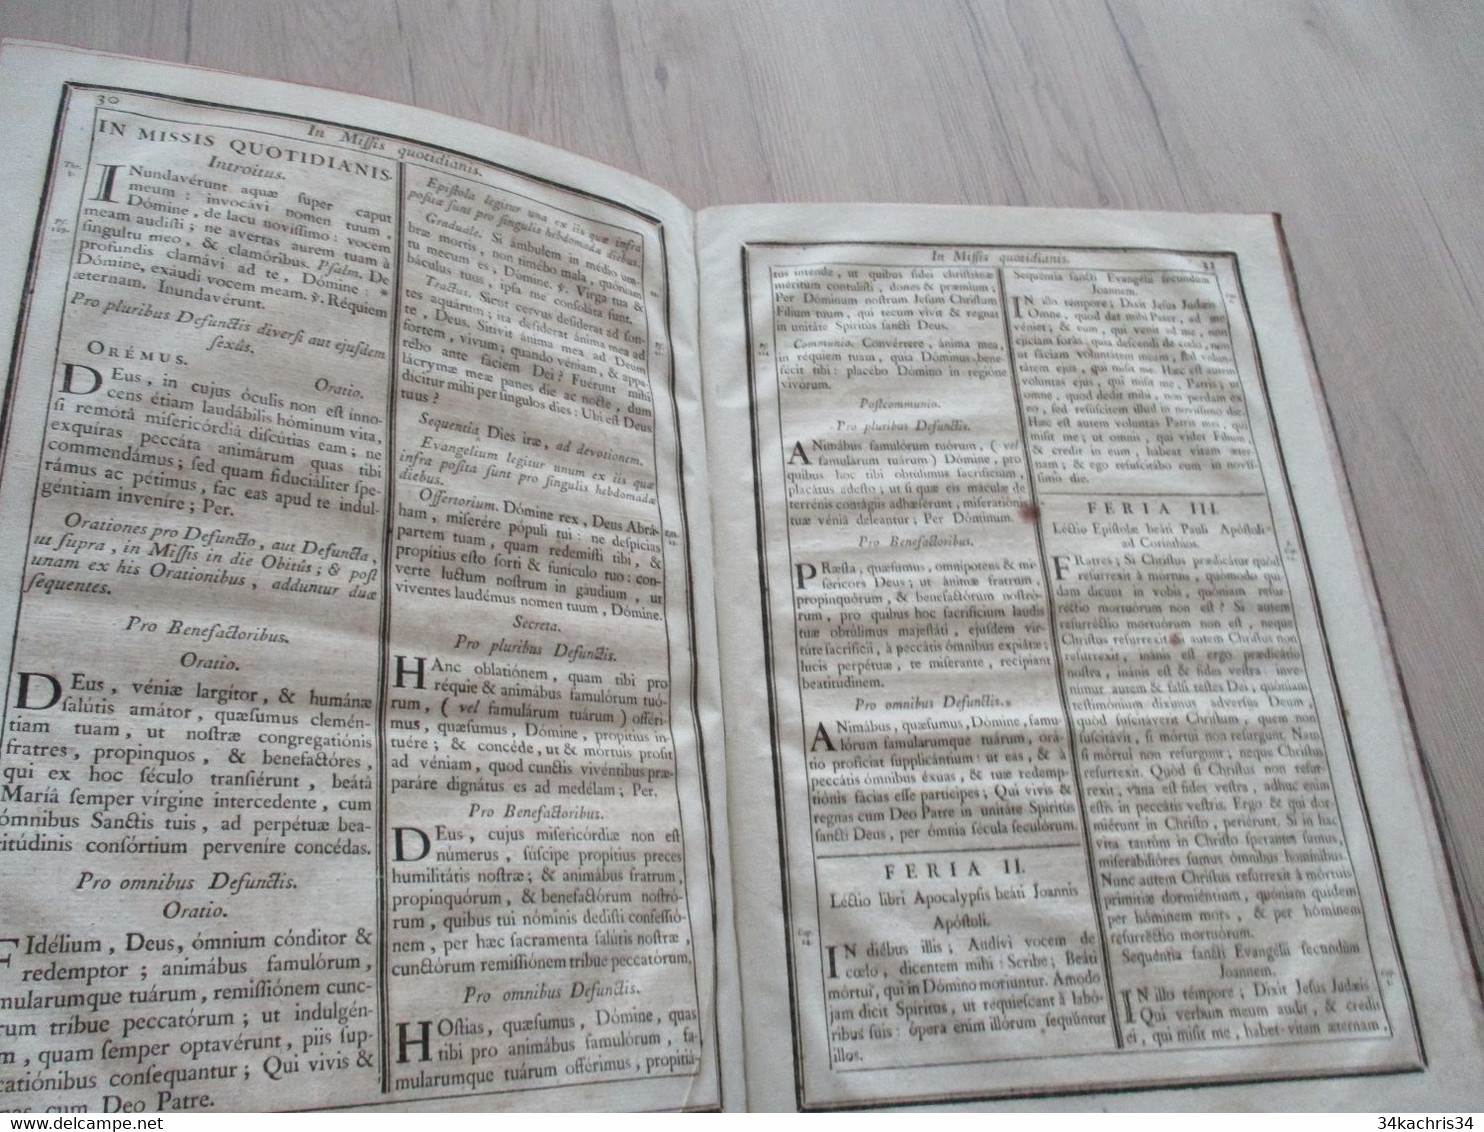 30
In Missis quotidianis.
IN MISSIS QUOTIDIANIS.
Introitus.
INundavérunt aquæ super caput
meum : invocávi nomen tuum,
Dómine, de lacu novissimo : vocem
meam audisti ; ne avertas aurem tuam à
singultu meo, & clamóribus. Psalm. De
profundis clamávi ad te, Dómine : *
Dómine, exáudi vocem meam. ℣. Réquiem
æternam. Inundavérunt.
Pro pluribus Defunctis diversi aut ejusdem
sexûs.
ORÉMUS.
Oratio.
DEus, in cujus óculis non est inno-
cens étiam laudábilis hóminum vita,
si remotâ misericórdiâ discútias eam ; ne
exquíras peccáta animárum quas tibi
commendámus ; sed quam fiduciáliter spe-
rámus ac pétimus, fac eas apud te indul-
géntiam invenire ; Per.
Orationes pro Defuncto, aut Defuncta,
ut supra, in Missis in die Obitûs ; & post
unam ex his Orationibus, adduntur duæ
sequentes.
Pro Benefactoribus.
Oratio.
DEus, véniæ largítor, & humánæ
salútis amátor, quæsumus clemén-
tiam tuam, ut nostræ congregatiónis
fratres, propinquos, & benefactóres,
qui ex hoc século transiérunt, beátâ
Maríâ semper vírgine intercedente, cum
ómnibus Sanctis tuis, ad perpétuæ bea-
titúdinis consórtium pervenire concédas.
Pro omnibus Defunctis.
Oratio.
FIdélium, Deus, ómnium cónditor &
redemptor ; animábus famulórum,
mularumque tuárum, remissiónem cunc-
rum tríbue peccatórum ; ut indulgén-
m, quam semper optavérunt, piis sup-
catiónibus consequantur ; Qui vivis &
nas cum Deo Patre.
Epistola legitur una ex iis quæ infra
posita sunt pro singulis hebdomadæ diebus.
Graduale. Si ámbulem in médio um-
bræ mortis, non timébo mala, quóniam
tu mecum es, Dómine. ℣. Virga tua &
báculus tuus, ipsa me consoláta sunt.
Tractus. Sicut cervus desiderat ad fon-
tes aquárum ; ita desíderat ánima mea ad
te, Deus. Sitivit ánima mea ad Deum
fortem, vivum ; quando véniam, & appa-
rébo ante fáciem Dei ? Fuérunt mihi
lácrymæ meæ panes die ac nocte, dum
dicitur mihi per síngulos dies : Ubi est Deus
tuus ?
Sequentia Dies iræ, ad devotionem.
Evangelium legitur unum ex iis quæ
infra posita sunt pro singulis hebdomadæ
diebus.
Offertorium. Dómine rex, Deus Abrà-
ham, miserére pópuli tui : ne despícias
partem tuam, quam redemisti tibi, &
propítius esto sorti & funículo tuo : con-
verte luctum nostrum in gáudium, ut
viventes laudémus nomen tuum, Dómine.
Secreta.
Pro pluribus Defunctis.
HAnc oblatiónem, quam tibi pro
réquie & animábus famulórum tuó-
rum, ( vel famulárum tuárum ) offéri-
mus, quæsumus, Dómine, propítius in-
tuére ; & concéde, ut & mórtuis prosit
ad véniam, quod cunctis vivéntibus præ-
paráre dignátus es ad medélam ; Per.
Pro Benefactoribus.
DEus, cujus misericórdiæ non est
númerus, súscipe propítius preces
humilitátis nostræ ; & animábus fratrum,
propinquórum, & benefactórum nostró-
rum, quibus tui nóminis dedísti confessió-
nem, per hæc sacramenta salútis nostræ,
cunctórum remissiónem tríbue peccatórum.
Pro omnibus Defunctis.
HOstias, quæsumus, Dómine, quas
tibi pro animábus famulórum, fa-
mularumque tuárum offérimus, propitiá-
In Missis quotidianis.
31
tus intende, ut quibus fidei christiánæ
méritum contulisti, dones & præmium ;
Per Dóminum nostrum Jesum Christum
Filium tuum, qui tecum vivit & regnat
in unitáte Spíritus sancti Deus.
Communio. Convértere, ánima mea,
in réquiem tuam, quia Dóminus bene-
fécit tibi : placébo Dómino in regióne
vivorum.
Postcommunio.
Pro pluribus Defunctis.
ANimábus famulórum tuórum, ( vel
famularum tuárum ) Dómine, pro
quibus hoc tibi obtulimus sacrificium,
placátus adesto ; ut si quæ eis máculæ de
terrénis contágiis adhæsérunt, miseratiónis
tuæ véniâ deleantur ; Per Dóminum.
Pro Benefactoribus.
PRæsta, quæsumus, omnípotens & mi-
séricors Deus ; ut ánimæ fratrum,
propinquórum, & benefactórum nostró-
rum, pro quibus hoc sacrificium laudis
tuæ obtúlimus majestáti, ejusdem vir-
túte sacrifícii, à peccátis ómnibus expiátæ ;
lucis perpétuæ, te miserante, recipiant
beatitudinem.
Pro omnibus Defunctis.
ANimábus, quæsumus, Dómine, famu-
lórum famularumque tuárum, orá-
tio profíciat supplicántium : ut eas, & à
peccátis ómnibus éxuas, & tuæ redemp-
tiónis fácias esse partícipes ; Qui vivis &
regnas cum Deo Patre in unitáte Spíritus
sancti Deus, per ómnia sécula seculórum.
FERIA II.
Léctio libri Apocalypsis beáti Joannis
Apóstoli.
IN diébus illis ; Audívi vocem de
cœlo, dicentem mihi : Scribe ; Beáti
mórtui, qui in Dómino moriuntur. Amodo
jam dicit Spíritus, ut réquiescant à labó-
ribus suis : ópera enim illórum sequúntur
illos.
Sequéntia sancti Evangelii secundum
Joannem.
IN illo témpore ; Dixit Jesus Judæis :
Omne, quod dat mihi Pater, ad me
véniet ; & eum, qui venit ad me, non
ejíciam foras : quia descendi de cœlo, non
ut fáciam voluntátem meam, sed volun-
tátem ejus, qui misit me. Hæc est autem
voluntas ejus, qui misit me, Patris ; ut
omne, quod dedit mihi, non perdam ex
eo, sed resúscitem illud in novissimo die.
Hæc est autem voluntas Patris mei, qui
misit me ; ut omnis, qui videt Fílium,
& credit in eum, hábeat vitam æter-
nam ; & ego resuscitábo eum in novis-
simo die.
FERIA III.
Léctio Epistolæ beáti Pauli Apóstoli
ad Corinthios.
FRatres ; Si Christus prædicátur quòd
resurrexit à mórtuis, quómodo qui-
dam dicunt in vobis, quóniam resur-
réctio mortuórum non est ? Si autem
resurréctio mortuórum non est, neque
Christus resurrexit. Si autem Christus non
resurrexit, inánis est ergo prædicátio
nostra, inánis est & fides vestra : inve-
nimur autem & falsi testes Dei, quóniam
testimónium díximus adversus Deum,
quòd suscitáverit Christum, quem non
suscitávit, si mórtui non resurgunt. Nam
si mórtui non resurgunt ; neque Christus
resurrexit. Quòd si Christus non resur-
rexit, vana est fides vestra, adhuc enim
estis in peccátis vestris. Ergo & qui dor-
miérunt in Christo, periérunt. Si in hac
vita tantùm in Christo sperantes sumus,
miserabilióres sumus ómnibus homínibus.
Nunc autem Christus resurrexit à mórtuis
primítiæ dormiéntium, quóniam quidem
per hóminem mors, & per hóminem
resurréctio mortuórum.
Sequéntia sancti Evangélii secundùm
Joannem.
IN illo témpore ; Dixit Jesus Judæis :
Qui verbum meum audit, & credit
ei, qui misit me, habet vitam æternam,
34kachris34